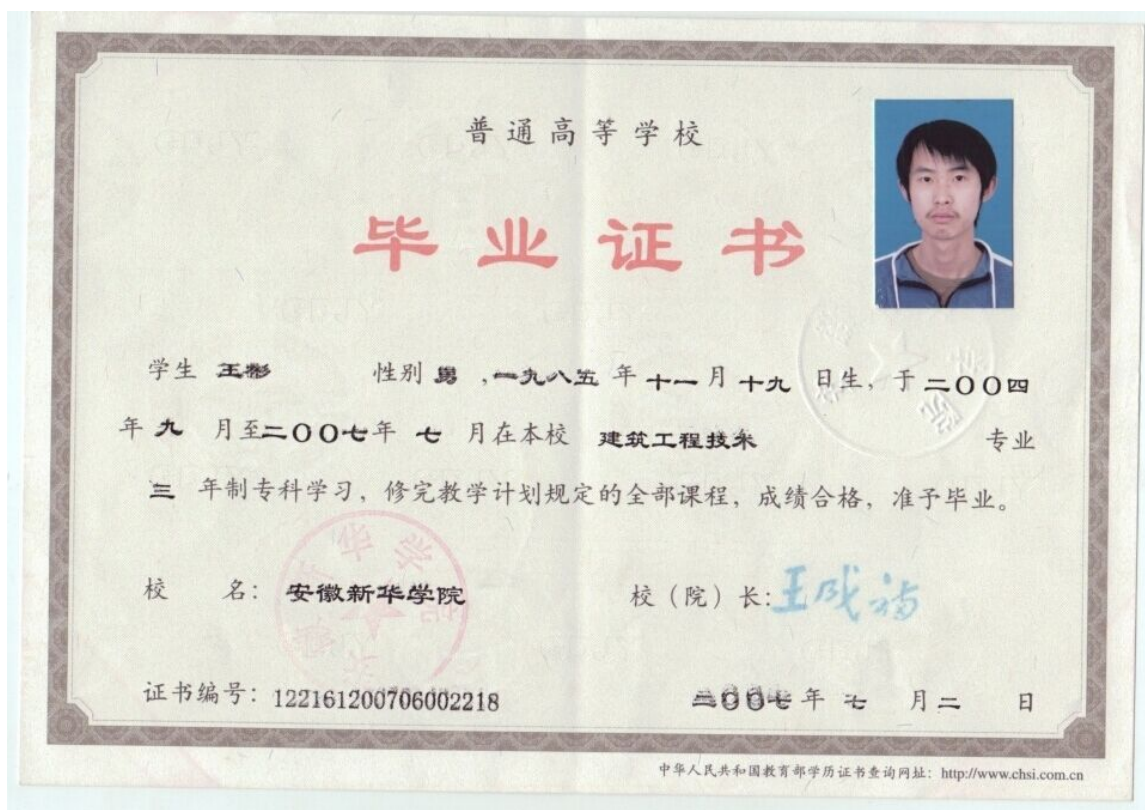 普通高等学校
毕业证书
学生 王彬 性别 男 ,一九八五 年 十一 月 十九 日生, 于 二〇〇四
年 九 月至二〇〇七年 七 月在本校 建筑工程技术 专业
三 年制专科学习, 修完教学计划规定的全部课程, 成绩合格, 准予毕业。
校 名: 安徽新华学院 校（院）长: 王成福
证书编号: 122161200706002218 二〇〇七 年 七 月 二 日
中华人民共和国教育部学历证书查询网址: http://www.chsi.com.cn